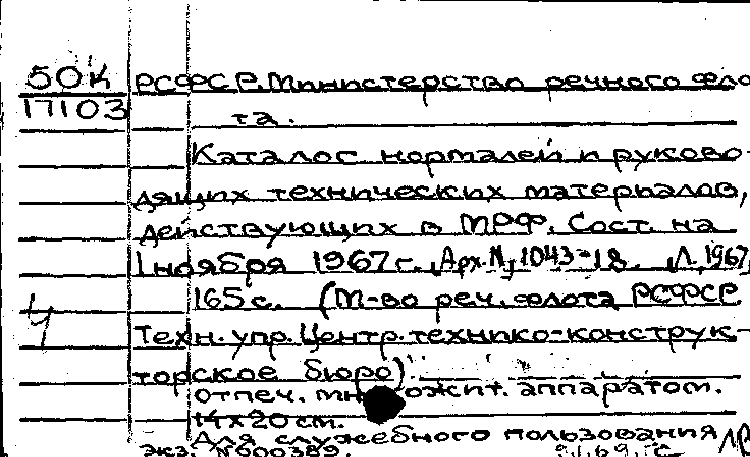 50К РСФСР. Министерство речного фло
17103
та.
Каталог нормалей и руково-
дящих технических материалов,
действующих в МРФ. Сост. на
1 ноября 1967 г. Арх. № 1043-18. Л., 1967,
165 с. (М-во реч. флота РСФСР
Ч
Техн. упр. Центр. технико-конструк-
торское бюро).
отпеч. ожит. аппаратом.
14х20 см.
Для служебного пользования
экз. №000389.